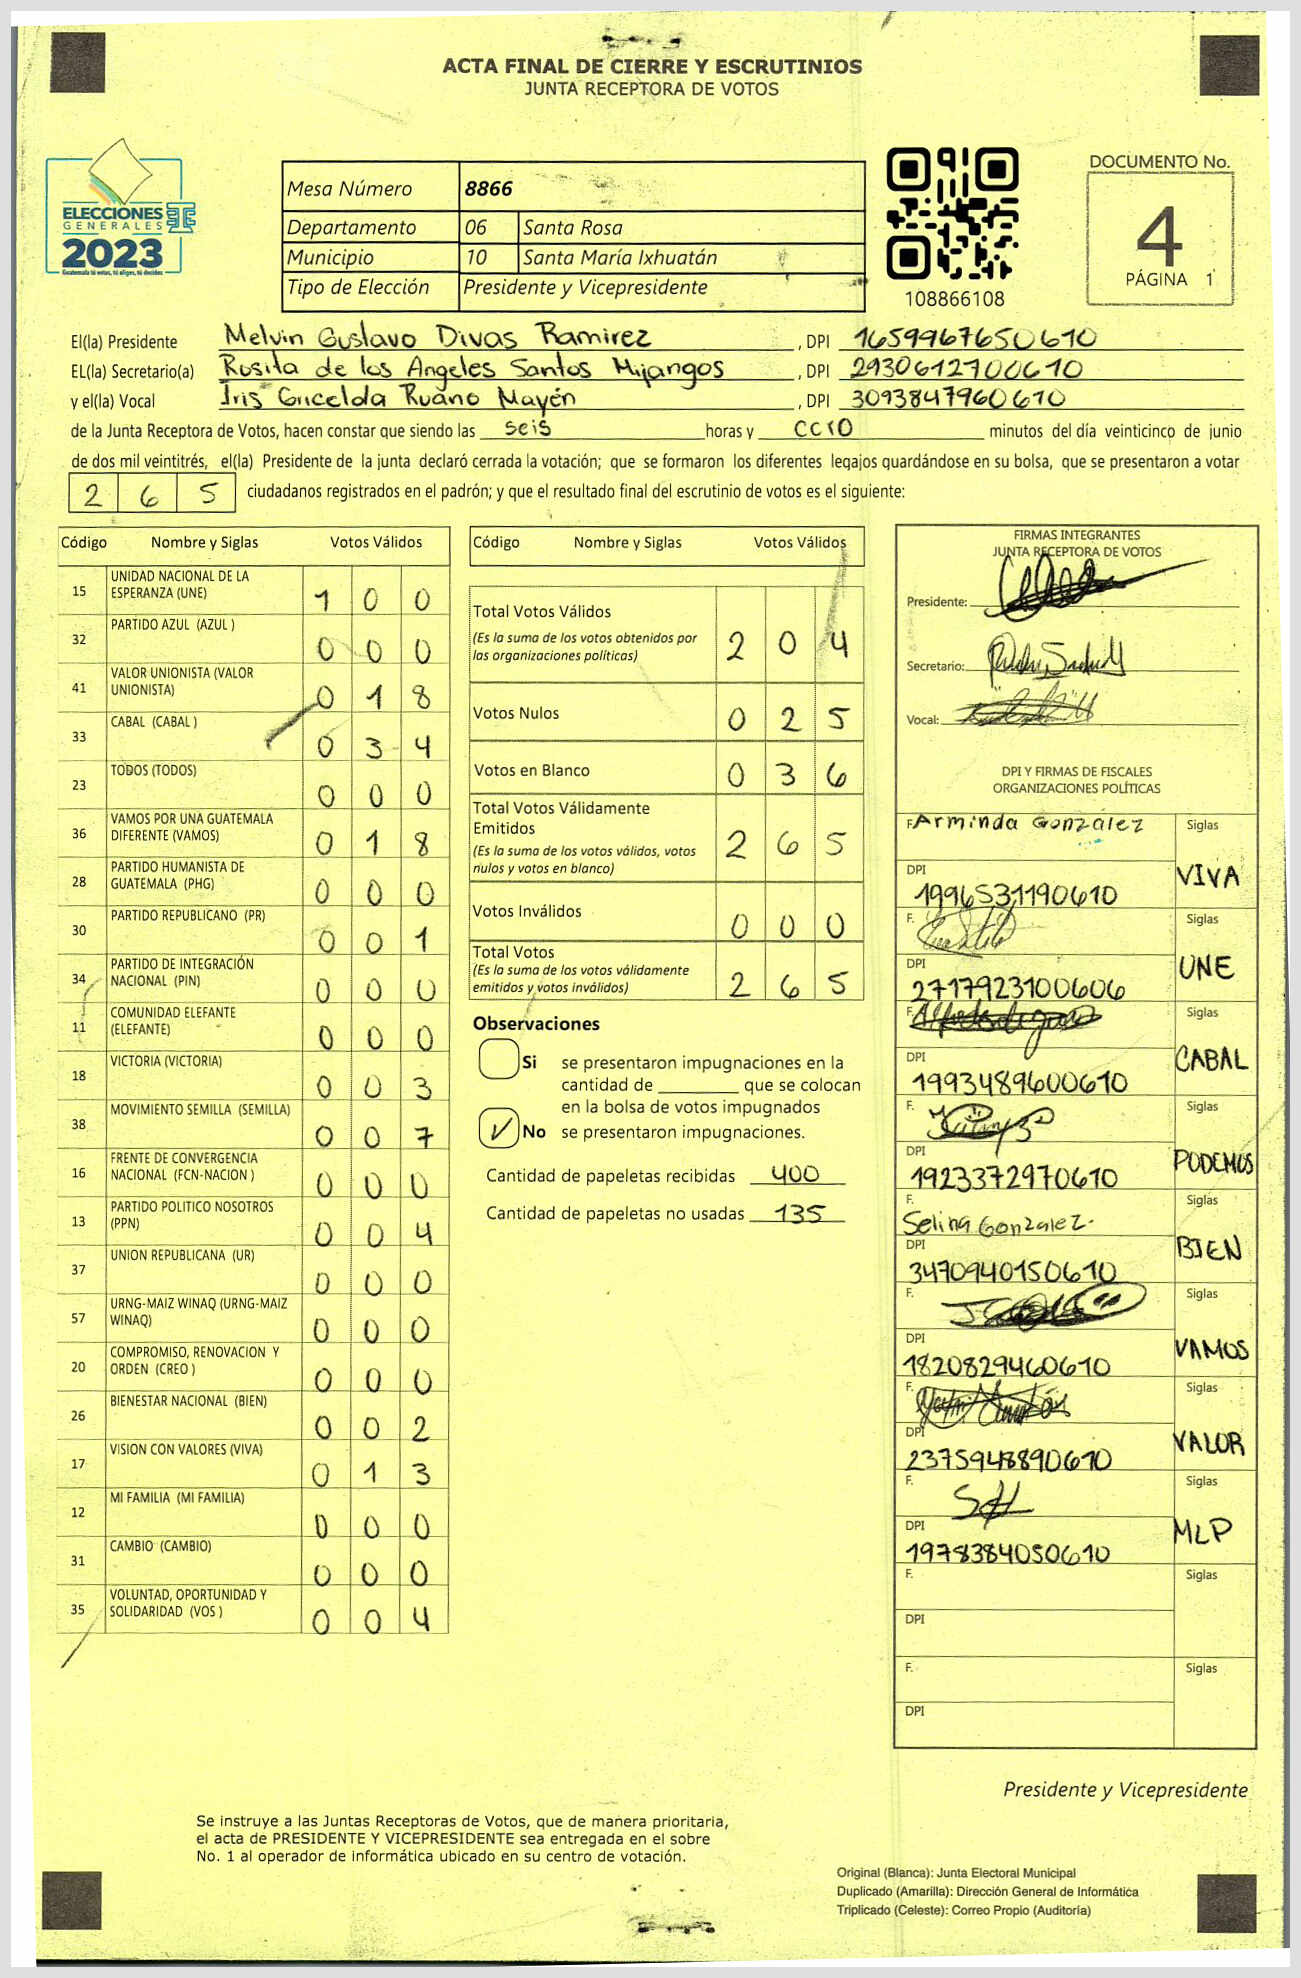 ACTA FINAL DE CIERRE Y ESCRUTINIOS
JUNTA RECEPTORA DE VOTOS
ELECCIONES
GENERALES
2023
Guatemala tú votas, tú eliges, tú decides
Mesa Número 8866
Departamento 06 Santa Rosa
Municipio 10 Santa María Ixhuatán
Tipo de Elección Presidente y Vicepresidente
108866108
DOCUMENTO No.
4
PÁGINA 1
El(la) Presidente Melvin Gustavo Divas Ramirez , DPI 1659967650610
EL(la) Secretario(a) Rosita de los Angeles Santos Mijangos , DPI 2930612700610
y el(la) Vocal Iris Gricelda Ruano Mayén , DPI 3093847960610
de la Junta Receptora de Votos, hacen constar que siendo las seis horas y cero minutos del día veinticinco de junio
de dos mil veintitrés, el(la) Presidente de la junta declaró cerrada la votación; que se formaron los diferentes legajos guardándose en su bolsa, que se presentaron a votar
2 6 5 ciudadanos registrados en el padrón; y que el resultado final del escrutinio de votos es el siguiente:
Código Nombre y Siglas Votos Válidos
15 UNIDAD NACIONAL DE LA
ESPERANZA (UNE) 1 0 0
32 PARTIDO AZUL (AZUL ) 0 0 0
41 VALOR UNIONISTA (VALOR
UNIONISTA) 0 1 8
33 CABAL (CABAL ) 0 3 4
23 TODOS (TODOS) 0 0 0
36 VAMOS POR UNA GUATEMALA
DIFERENTE (VAMOS) 0 1 8
28 PARTIDO HUMANISTA DE
GUATEMALA (PHG) 0 0 0
30 PARTIDO REPUBLICANO (PR) 0 0 1
34 PARTIDO DE INTEGRACIÓN
NACIONAL (PIN) 0 0 0
11 COMUNIDAD ELEFANTE
(ELEFANTE) 0 0 0
18 VICTORIA (VICTORIA) 0 0 3
38 MOVIMIENTO SEMILLA (SEMILLA) 0 0 7
16 FRENTE DE CONVERGENCIA
NACIONAL (FCN-NACION ) 0 0 0
13 PARTIDO POLITICO NOSOTROS
(PPN) 0 0 4
37 UNION REPUBLICANA (UR) 0 0 0
57 URNG-MAIZ WINAQ (URNG-MAIZ
WINAQ) 0 0 0
20 COMPROMISO, RENOVACION Y
ORDEN (CREO ) 0 0 0
26 BIENESTAR NACIONAL (BIEN) 0 0 2
17 VISION CON VALORES (VIVA) 0 1 3
12 MI FAMILIA (MI FAMILIA) 0 0 0
31 CAMBIO (CAMBIO) 0 0 0
35 VOLUNTAD, OPORTUNIDAD Y
SOLIDARIDAD (VOS ) 0 0 4
Código Nombre y Siglas Votos Válidos
Total Votos Válidos
(Es la suma de los votos obtenidos por
las organizaciones políticas) 2 0 4
Votos Nulos 0 2 5
Votos en Blanco 0 3 6
Total Votos Válidamente
Emitidos
(Es la suma de los votos válidos, votos
nulos y votos en blanco) 2 6 5
Votos Inválidos 0 0 0
Total Votos
(Es la suma de los votos válidamente
emitidos y votos inválidos) 2 6 5
Observaciones
Si se presentaron impugnaciones en la
cantidad de ________ que se colocan
en la bolsa de votos impugnados
No se presentaron impugnaciones.
Cantidad de papeletas recibidas 400
Cantidad de papeletas no usadas 135
FIRMAS INTEGRANTES
JUNTA RECEPTORA DE VOTOS
Presidente:
Secretario:
Vocal:
DPI Y FIRMAS DE FISCALES
ORGANIZACIONES POLÍTICAS
F. Arminda González Siglas
DPI 1996531190610 VIVA
F. Siglas
DPI 2717923100606 UNE
F. Siglas
DPI 1993489600610 CABAL
F. Siglas
DPI 1923372970610 PODEMOS
F. Selina Gonzalez. Siglas
DPI 3470940150610 BIEN
F. Siglas
DPI 1820829460610 VAMOS
F. Siglas
DPI 2375948890610 VALOR
F. Siglas
DPI 1978384050610 MLP
F. Siglas
DPI
F. Siglas
DPI
Presidente y Vicepresidente
Se instruye a las Juntas Receptoras de Votos, que de manera prioritaria,
el acta de PRESIDENTE Y VICEPRESIDENTE sea entregada en el sobre
No. 1 al operador de informática ubicado en su centro de votación.
Original (Blanca): Junta Electoral Municipal
Duplicado (Amarilla): Dirección General de Informática
Triplicado (Celeste): Correo Propio (Auditoría)